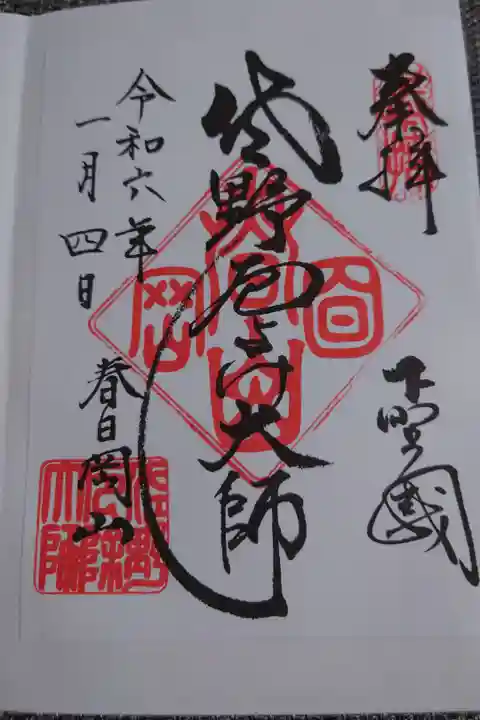 奉拝
下野國
佐野厄よけ大師
令和六年
一月四日
春日岡山